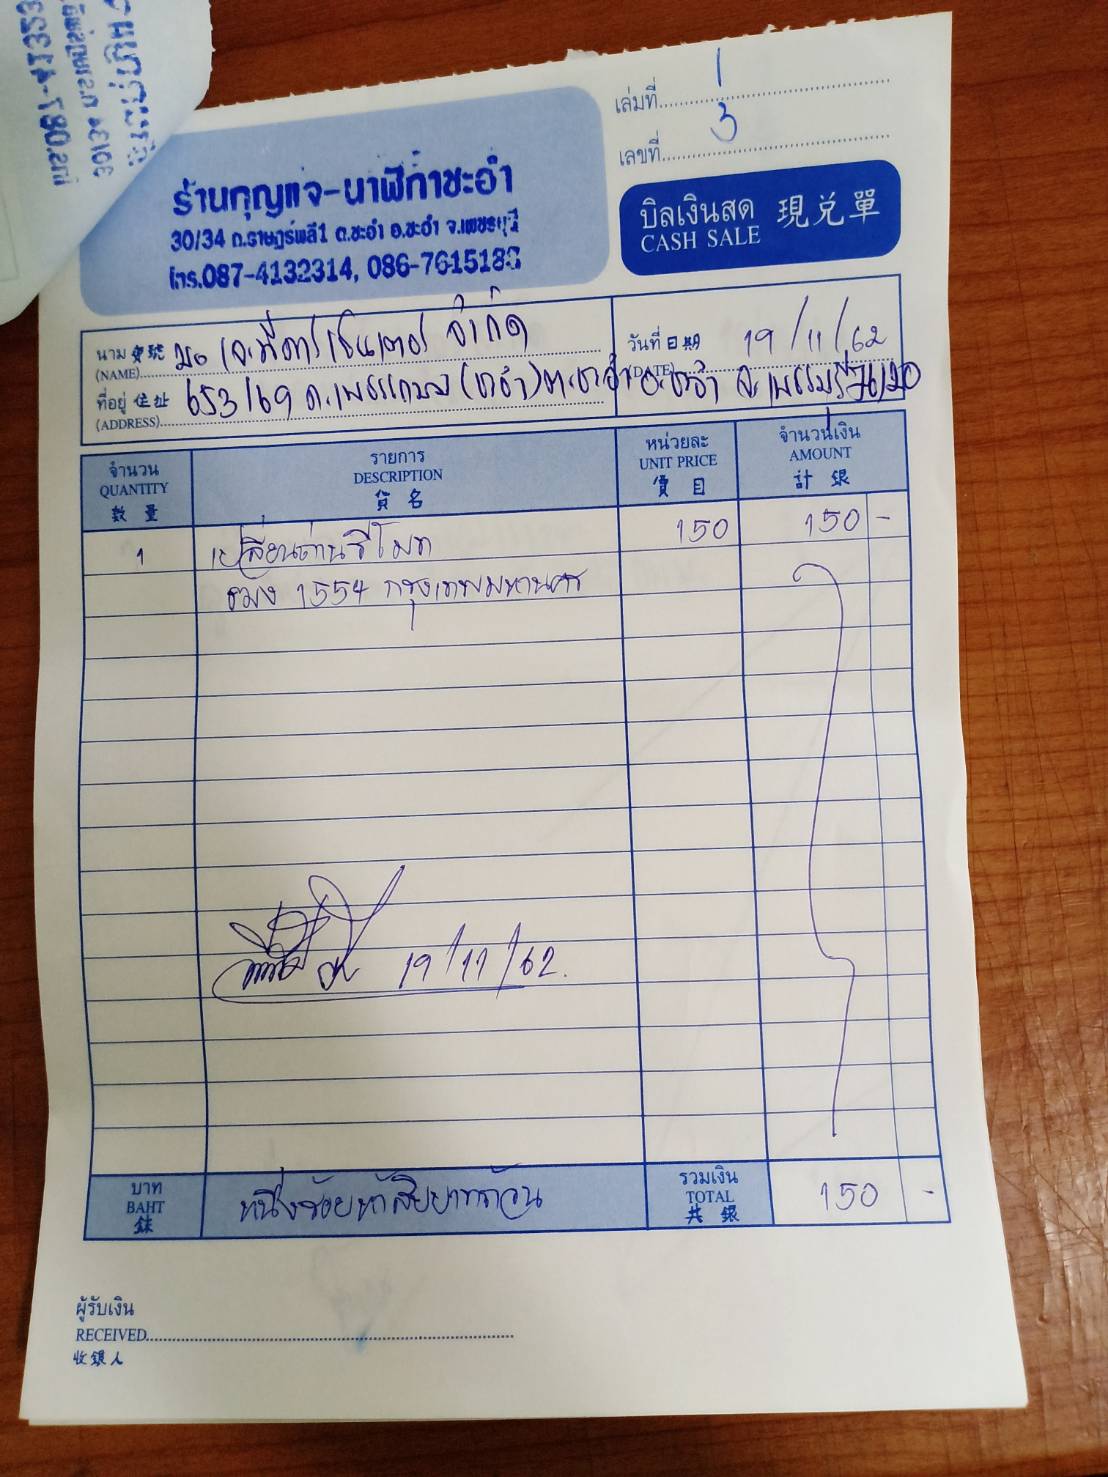 เล่มที่ 1
เลขที่ 3
ร้านกุญแจ-นาฬิกาชะอำ
30/34 ถ.ราษฎร์พลี1 ต.ชะอำ อ.ชะอำ จ.เพชรบุรี
โทร.087-4132314, 086-7615188
บิลเงินสด 現兑單
CASH SALE
นาม 寶號 บ. เจ.พี คาร์เซ็นเตอร์ จำกัด
(NAME)
วันที่ 日期 19/11/62
(DATE)
ที่อยู่ 住址 653/69 ถ.เพชรเกษม (ชะอำ) ต.ชะอำ อ.ชะอำ จ.เพชรบุรี 76120
(ADDRESS)
จำนวน รายการ หน่วยละ จำนวนเงิน
QUANTITY DESCRIPTION UNIT PRICE AMOUNT
數量 貨名 價目 計銀
1 เปลี่ยนถ่านรีโมท 150 150 -
1554 กรุงเทพมหานคร
19/11/62.
บาท หนึ่งร้อยห้าสิบบาทถ้วน รวมเงิน 150 -
BAHT TOTAL
銖 共銀
ผู้รับเงิน
RECEIVED
收銀人